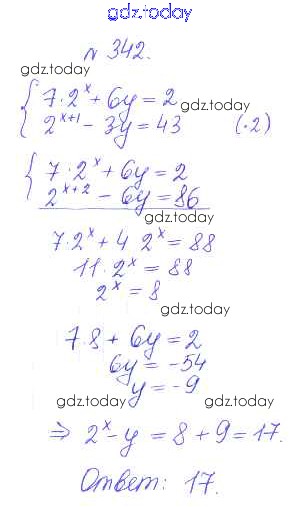 gdz.today
№ 342.
gdz.today
{ 7·2^x + 6y = 2 gdz.today
2^{x+1} - 3y = 43 (·2)
gdz.today
{ 7·2^x + 6y = 2
2^{x+2} - 6y = 86
gdz.today
7·2^x + 4 2^x = 88
11·2^x = 88
2^x = 8
gdz.today
7·8 + 6y = 2
6y = -54
y = -9
gdz.today gdz.today
⇒ 2^x - y = 8 + 9 = 17.
Ответ: 17.
gdz.today